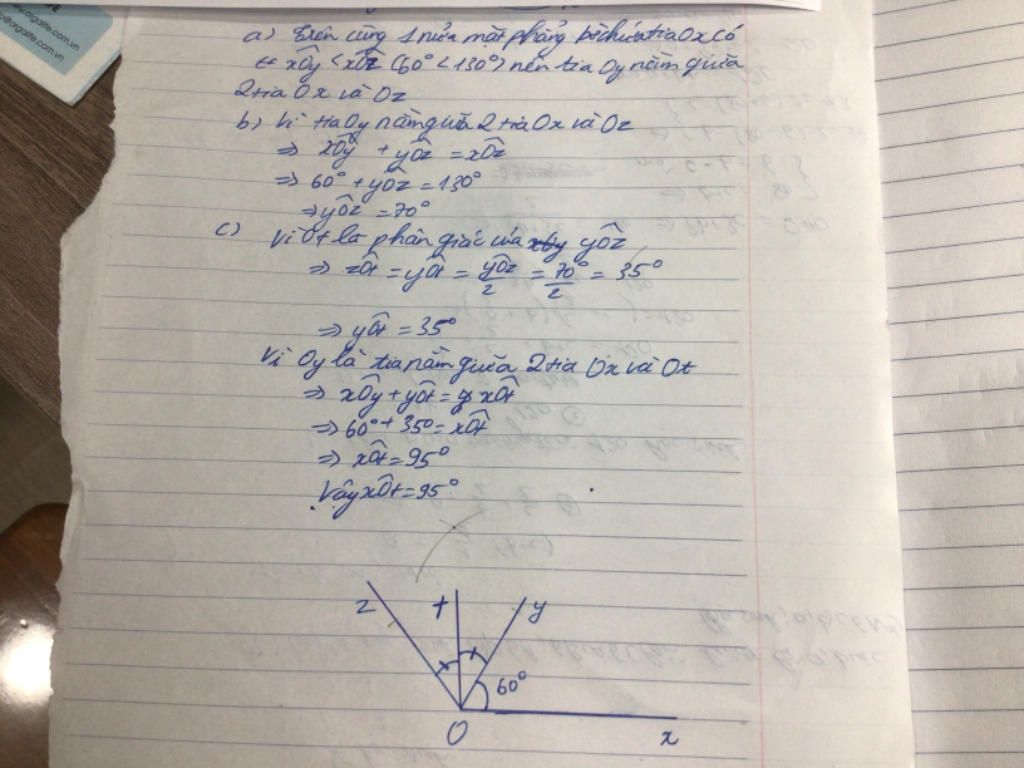 www.orgalife.com.vn
o@orgalife.com.vn
a) Trên cùng 1 nửa mặt phẳng bờ chứa tia Ox có
xÔy < xÔz (60° < 130°) nên tia Oy nằm giữa
2 tia Ox và Oz
b) Vì tia Oy nằm giữa 2 tia Ox và Oz
⇒ xÔy + yÔz = xÔz
⇒ 60° + yÔz = 130°
⇒ yÔz = 70°
c) Vì Ot là phân giác của yÔz
⇒ zÔt = yÔt = yÔz/2 = 70°/2 = 35°
⇒ yÔt = 35°
Vì Oy là tia nằm giữa 2 tia Ox và Ot
⇒ xÔy + yÔt = xÔt
⇒ 60° + 35° = xÔt
⇒ xÔt = 95°
Vậy xÔt = 95°
z t y
60°
O x